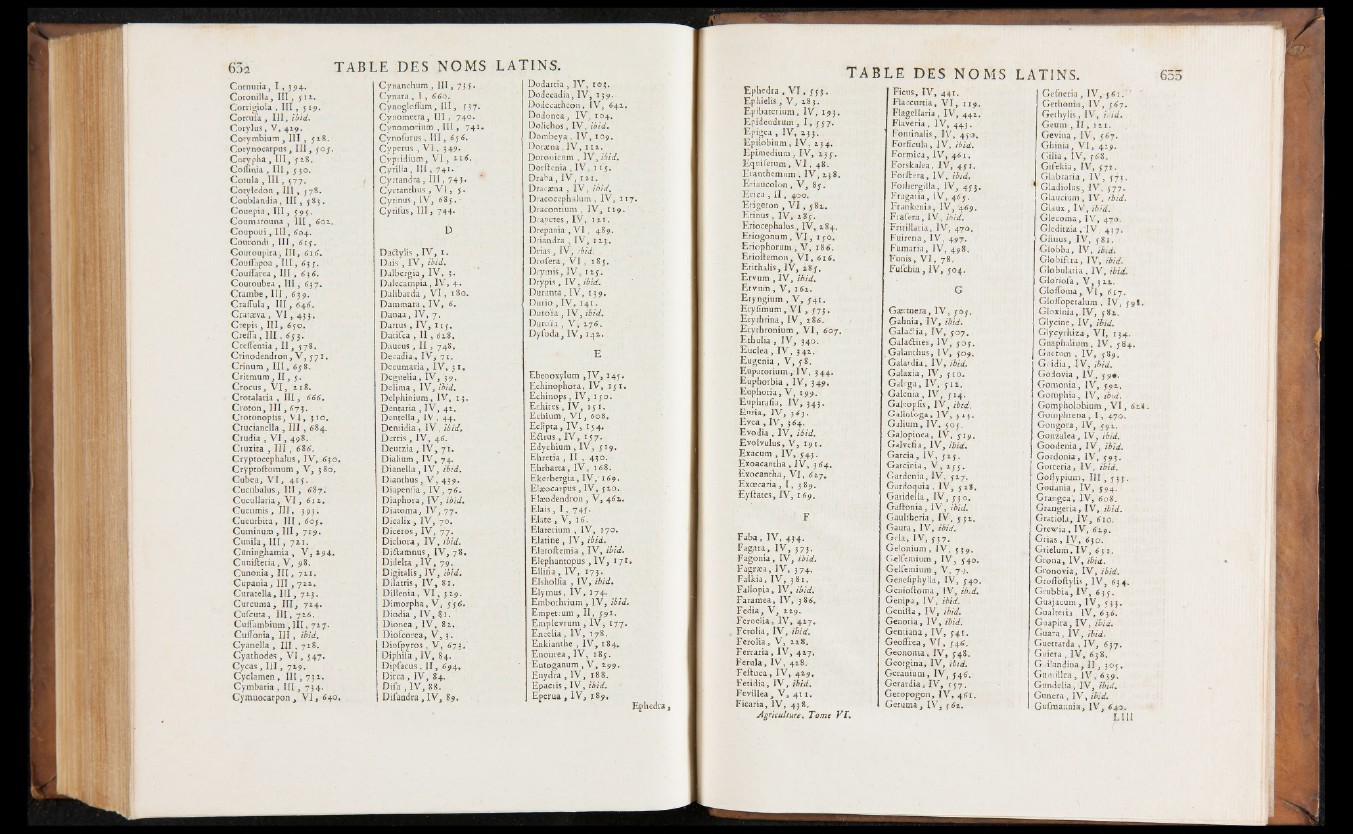 632 TABLE DES NOMS LATINS.
Cornutia, I, 394.
Coronilla, III, 512.
Corrigiola, III, 519.
Cortusa, III, ibid.
Corylus, V, 429.
Corymbium, III, 528.
Corynocarpus, III, 505.
Corypha, III, 528.
Cossinia, III, 530.
Cotula, III, 577.
Cotyledon, III, 578.
Coublandia, III, 583.
Couepia, III, 595.
Coumarouna, III, 602.
Coupoui, III, 604.
Courondi, III, 615.
Couroupita, III, 616.
Coussapoa, III, 635.
Coussarea, III, 636.
Coutoubea, III, 637.
Crambe, III, 639.
Crassula, III, 646.
Crateva, VI, 433.
Crepis, III, 650.
Cressa, III, 653.
Crescentia, II, 578.
Crinodendron, V, 571.
Crinum, III, 658.
Critmum, II, 5.
Crocus, VI, 218.
Crotalaria, III, 666.
Croton, III, 673.
Crotonopsis, VI, 310.
Crucianella, III, 684.
Crudia, VI, 498.
Cruzita, III, 686.
Cryptocephalus, IV, 630.
Cryptostomum, V, 380.
Cubea, VI, 415.
Cucubalus, III, 687.
Cucullaria, VI, 612.
Cucumis, III, 393.
Cucurbita, III, 605.
Cuminum, III, 719.
Cunila, III, 721.
Cuninghamia, V, 294.
Cunisteria, V, 98.
Cunonia, III, 721.
Cupania, III, 722.
Curatella, III, 723.
Curcuma, III, 724.
Cuscuta, III, 726.
Cussambium, III, 727.
Cussonia, III, ibid.
Cyanella, III, 728.
Cyathodes, VI, 547.
Cycas, III, 729.
Cyclamen, III, 732.
Cymbaria, III, 734.
Cymuocarpon, VI, 640.
Cynanchum, III, 735.
Cynara, I, 660.
Cynoglossum, III, 737.
Cynometra, III, 740.
Cynomorium, III, 742.
Cynosurus, III, 656.
Cyperus, VI, 349.
Cypridium, VI, 216.
Cyrilla, III, 741.
Cyrtandra, III, 743.
Cyrtanthus, VI, 5.
Cytinus, IV, 685.
Cytisus, III, 744.
D
Dactylis, IV, 1.
Dais, IV, ibid.
Dalbergia, IV, 3.
Dalecampia, IV, 4.
Dalibarda, VI, 180.
Dammara, IV, 6.
Danaa, IV, 7.
Darrus, IV, 115.
Datisca, II, 628.
Daucus, II, 748.
Decadia, IV, 71.
Decumaria, IV, 31.
Deguelia, IV, 39.
Delima, IV, ibid.
Delphinium, IV, 13.
Dentaria, IV, 42.
Dentella, IV, 44.
Dentidia, IV, ibid.
Derris, IV, 46.
Deutzia, IV, 71.
Dialium, IV, 74.
Dianella, IV, ibid.
Dianthus, V, 439.
Diapensia, IV, 76.
Diaphora, IV, ibid.
Diatoma, IV, 77.
Dicalix, IV, 70.
Diceros, IV, 77.
Dichora, IV, ibid.
Dictamnus, IV, 78.
Didelta, IV, 79.
Digitalis, IV, ibid.
Dilatris, IV, 81.
Dillenia, VI, 329.
Dimorpha, V, 556.
Diodia, IV, 81.
Dionea, IV, 82.
Dioscorea, V, 3.
Diospyros, V, 673.
Diphisa, IV, 84.
Dipsacus, II, 694.
Dirca, IV, 84.
Disa, IV, 88.
Disandra, IV, 89.
Dodartia, IV, 103.
Dodecadia, IV, 139.
Dodecatheon, IV, 642.
Dodonea, IV, 104.
Dolichos, IV, ibid.
Dombeya, IV, 109.
Doræna, IV, 112.
Doronicum, IV, ibid.
Dorstenia, IV, 115.
Draba, IV, 121.
Dracæna, IV, ibid.
Dracocephalum, IV, 117.
Dracontium, IV, 119.
Drapetes, IV, 121.
Drepania, VI, 489.
Driandra, IV, 123.
Drias, IV, ibid.
Drosera, VI, 285.
Drymis, IV, 125.
Drypis, IV, ibid.
Duranta, IV, 139.
Durio, IV, 141.
Duroia, IV, ibid.
Duroia, V, 276.
Dysoda, IV, 142.
E
Ebenoxylum, IV, 145.
Echinophora, IV, 151.
Echinops, IV, 150.
Echites, IV, 151.
Echium, VI, 608.
Eclipta, IV, 154.
Ectrus, IV, 157.
Edychium, IV, 519.
Ehretia, II, 430.
Ehrharta, IV, 168.
Ekerbergia, IV, 169.
Elæocarpus, IV, 520.
Elæodendron, V, 462.
Elais, I, 745.
Elate, V, 16.
Elaterium, IV, 170.
Elatine, IV, ibid.
Elatostemia, IV, ibid.
Elephantopus, IV, 171.
Ellisia, IV, 173.
Elsholsia, IV, ibid.
Elymus, IV, 174.
Embothrium, IV, ibid.
Empetrum, II, 591.
Emplevrum, IV, 177.
Encelia, IV, 178.
Enkianthe, IV, 184.
Enourea, IV, 185.
Entoganum, V, 299.
Enydra, IV, 188.
Epacris, IV, ibid.
Eperua, IV, 189.
Ephedra,
TABLE DES NOMS LATINS. 633
Ephedra, VI, 553.
Ephielis, V, 283.
Epibaterium, IV, 193.
Epidendrum, I, 557.
Epigea, IV, 233.
Epilobium, IV, 234.
Epimedium, IV, 235.
Equisetum, VI, 48.
Eranthemum, IV, 238.
Eriaucolon, V, 85.
Erica, II, 400.
Erigeron, VI, 582.
Erinus, IV, 285.
Eriocephalus, IV, 284.
Eriogonum, VI, 150.
Eriophorum, V, 186.
Eriostemon, VI, 616.
Erithalis, IV, 285.
Ervum, IV, ibid.
Ervum, V, 162.
Eryngium, V, 541.
Erysimum, VI, 573.
Erythrina, IV, 286.
Erythronium, VI, 607.
Ethulia, IV, 340.
Euclea, IV, 342.
Eugenia, V, 58.
Eupatorium, IV, 344.
Euphorbia, IV, 349.
Euphoria, V, 299.
Euphrasia, IV, 343.
Euria, IV, 363.
Evea, IV, 364.
Evodia, IV, ibid.
Evolvulus, V, 191.
Exacum, IV, 543.
Exoacantha, IV, 364.
Exocantha, VI, 627.
Exœcaria, I, 389.
Eystates, IV, 169.
F
Faba, IV, 434.
Fagara, IV, 373.
Fagonia, IV, ibid.
Fagræa, IV, 374.
Falkia, IV, 381.
Fallopia, IV, ibid.
Faramea, IV, 386.
Fedia, V, 229.
Feroelia, IV, 427.
Ferolia, IV, ibid.
Ferolia, V, 228.
Ferraria, IV, 427.
Ferula, IV, 428.
Festuca, IV, 429.
Fetidia, IV, ibid.
Fevillea, V, 411.
Ficaria, IV, 438.
Agriculture. Tome VI.
Ficus, IV, 441.
Flacourtia, VI, 119.
Flagellaria, IV, 442.
Flaveria, IV, 443.
Fontinalis, IV, 450.
Forficula, IV, ibid.
Formica, IV, 461.
Forskalea, IV, 451.
Forstera, IV, ibid.
Fothergilla, IV, 453.
Fragaria, IV, 465.
Frankenia, IV, 469.
Frasera, IV, ibid.
Fritillaria, IV, 470.
Fuirena, IV, 497.
Fumaria, IV, 498.
Funis, VI, 78.
Fuschia, IV, 504.
G
Gærtnera, IV, 505.
Gahnia, IV, ibid.
Galactia, IV, 507.
Galactites, IV, 505.
Galanthus, IV, 509.
Galardia, IV, ibid.
Galaxia, IV, 510.
Galega, IV, 512.
Galenia, IV, 514.
Galeopsis, IV, ibid.
Galium, IV, 505.
Galopinea, IV, 519.
Galvesia, IV, ibid.
Garcia, IV, 525.
Garcinia, V, 255.
Gardenia, IV, 527.
Gardoquia, IV, 528.
Garidella, IV, 530.
Gastonia, IV, ibid.
Gaultheria, IV, 532.
Gaura, IV, ibid.
Gela, IV, 537.
Gelonium, IV, 539.
Gelsemium, IV, 540.
Gelsemium, V, 70.
Genesiphylla, IV, 540.
Geniostoma, IV, ibid.
Genipa, IV, ibid.
Genista, IV, ibid.
Genoria, IV, ibid.
Gentiana, IV, 541.
Geoffrea, VI, 546.
Geonoma, IV, 548.
Georgina, IV, ibid.
Geranium, IV, 546.
Gerardia, IV, 557.
Geropogon, IV, 461.
Geruma, IV, 562.
Gesneria, IV, 561.
Gethonia, IV, 567.
Gethylis, IV, ibid.
Geum, II, 121.
Gevina, IV, 567.
Ghinia, VI, 429.
Gilia, IV, 568.
Gisekia, IV, 572.
Glabraria, IV, 573.
Gladiolus, IV, 577.
Glaucium, IV, ibid.
Glaux, IV, ibid.
Glecoma, IV, 470.
Gleditzia, IV, 437.
Glinus, IV, 581.
Globba, IV, ibid.
Globifera, IV, ibid.
Globularia, IV, ibid.
Gloriosa, V, 322.
Glossoma, VI, 617.
Glossopetalum, IV, 598.
Gloxinia, IV, 582.
Glycine, IV, ibid.
Glycyrhiza, VI, 134.
Gnaphalium, IV, 584.
Gnetum, IV, 589.
Gnidia, IV, ibid.
Godovia, IV, 590.
Gomonia, IV, 592.
Gomphia, IV, ibid.
Gompholobium, VI, 628.
Gomphrena, I, 470.
Gongora, IV, 592.
Gonzalea, IV, ibid.
Goodenia, IV, ibid.
Gordonia, IV, 593.
Gorteria, IV, ibid.
Gossypium, III, 535.
Gouania, IV, 594.
Grangea, IV, 608.
Grangeria, IV, ibid.
Gratiola, IV, 610.
Grewia, IV, 629.
Grias, IV, 630.
Grielum, IV, 632.
Grona, IV, ibid.
Gronovia, IV, ibid.
Grossostylis, IV, 634.
Grubbia, IV, 635.
Guajacum, IV, 533.
Gualteria, IV, 636.
Guapira, IV, ibid.
Guara, IV, ibid.
Guettarda, IV, 637.
Guiera, IV, 638.
Guilandina, II, 305.
Gundelia, IV, ibid.
Gunera, IV, ibid.
Gusmannia, IV, 640.
LIII